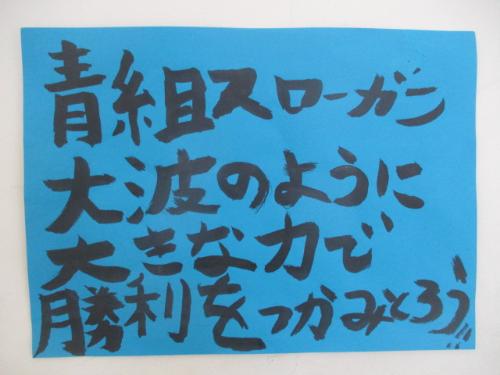 青組スローガン
大波のように
大きな力で
勝利をつかみとろう!!